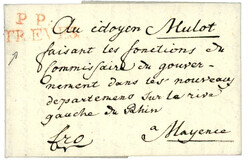 P. P.
TREV
Au citoyen Mulot
faisant les fonctions du
Commissaire du gouver-
nement dans les nouveaux
departemens sur la rive
gauche du Rhin
fro
a Mayence